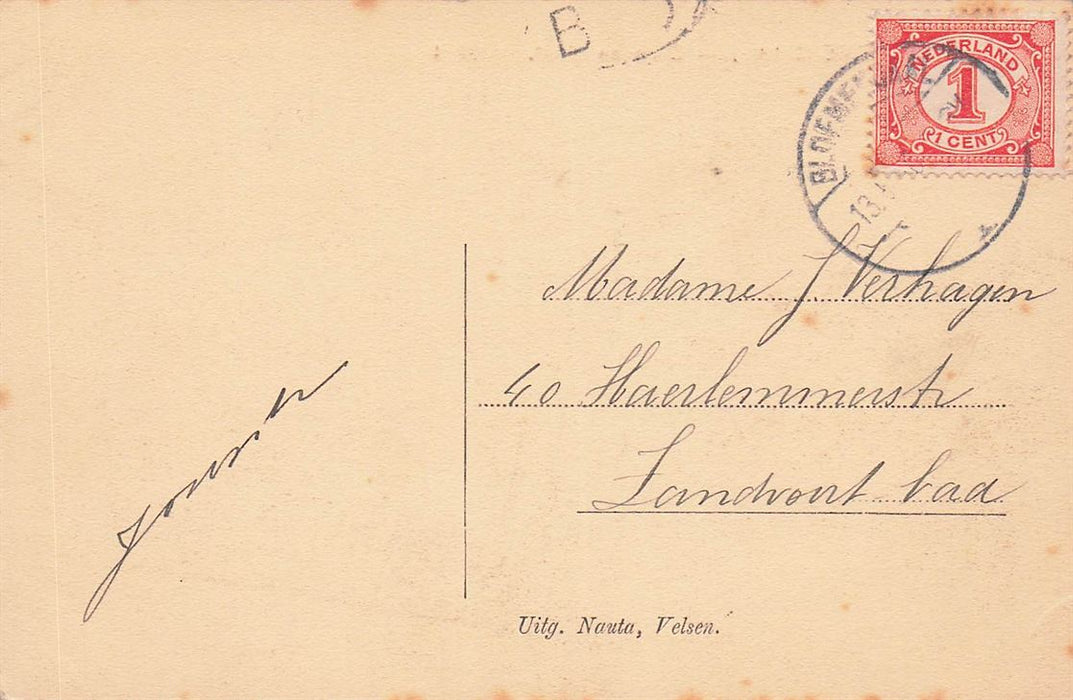 B
NEDERLAND
1
1 CENT
BLOEME
13
Madame J Verhagen
40 Haerlemmerstr
Zandvoort bad
Uitg. Nauta, Velsen.